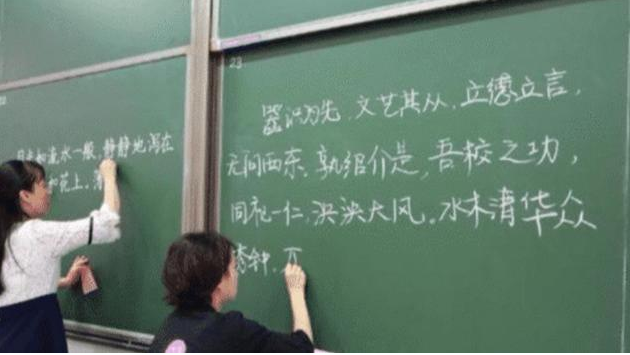 如流水一般,静静地泻在
和花上。
23
器识为先,文艺其从,立德立言,
无问西东,孰绍介是,吾校之功,
同视一仁,泱泱大风。水木清华众
秀钟,